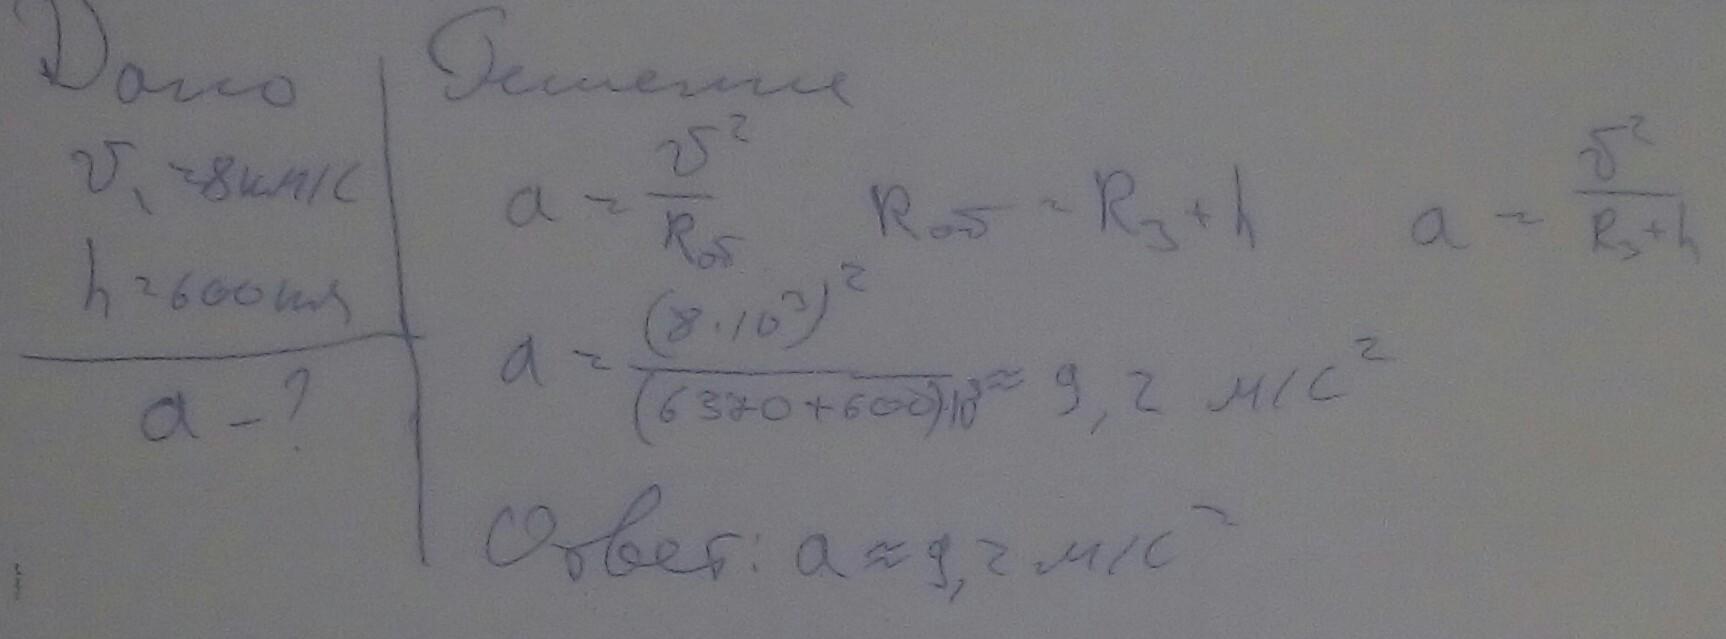 Дано
v₁ = 8 км/с
h = 600 км
a - ?
Решение
a = v²/Rоб Rоб = Rз + h a = v²/(Rз + h)
a = (8·10³)²/((6370+600)·10³) ≈ 9,2 м/с²
Ответ: a ≈ 9,2 м/с²